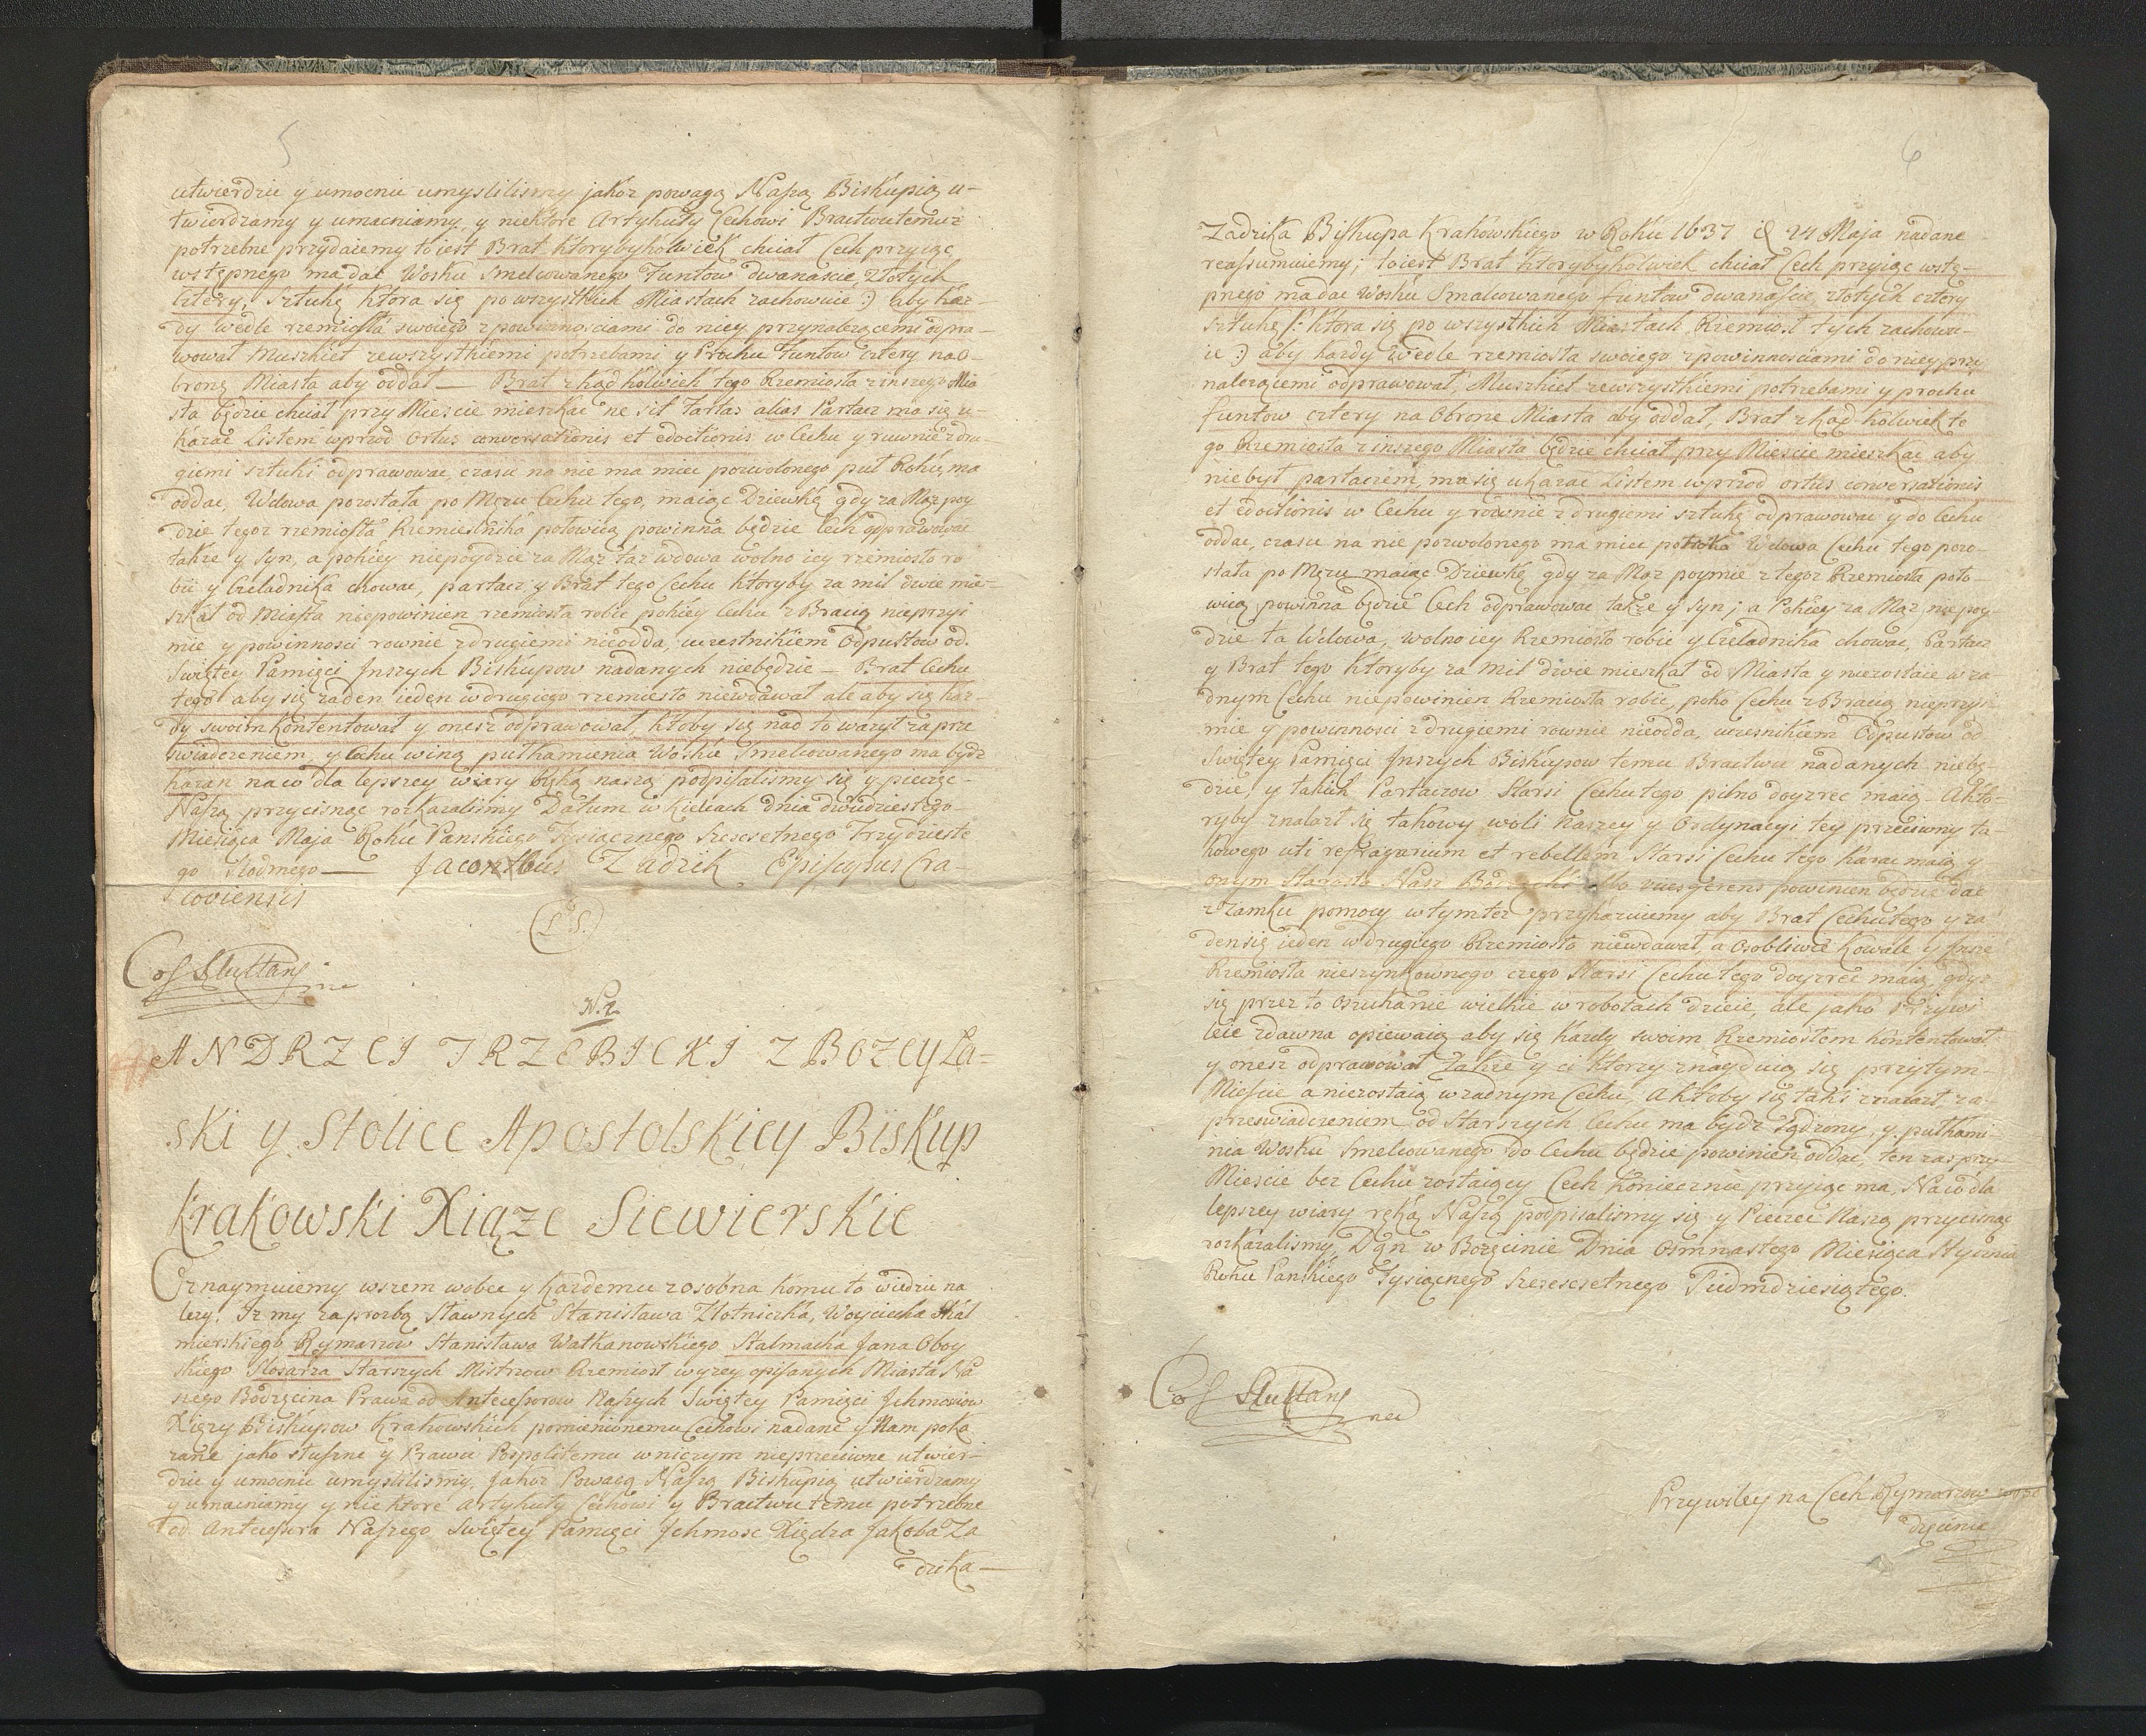 5
utwierdzić y umocnić umyslilismy jakóz powagą Naszą Biskupią u-
twierdzamy y umacniamy, y niektore Artykuły Cechowi Bractwutemuz
potrzebne przydaiemy to iest Brat ktorybykolwiek chciał Cech przyiąc
wstępnego ma dać Wosku Smelcowanego Funtow dwanascie, złotych
cztery, Sztukę ktora się po wszystkich Miastach zachowuie :) aby kaz-
dy wedle rzemiosła swoiego zpowinnosciami do niey przynalezącemi odpra-
wował Muszkiet zewszystkiemi potrzebami y Prochu Funtow cztery na O-
bronę Miasta aby oddał — Brat zkąd kolwiek tego Rzemiosła zinszego Mia
sta będzie chciał przy Miescie mieszkac ne sit Tartas alias Partacz ma się u-
kazac Listem wprzod ortus conversationis et edoctionis w Cechu y rownie zdru-
giemi sztuki odprawowac, czasu na nie ma miec pozwolonego puł Roku, ma
oddac, Wdowa pozostała po Mężu Cechu tego, maiąc Dziewkę gdy za Mąz poy
dzie tegoz rzemiosła Rzemieslnika połowicą powinna będzie Cech odprawowac
takze y Syn, a pokiey niepoydzie za Mąz taz wdowa wolno iey rzemiosło ro
bić y Czeladnika chowac, partacz y Brat tego Cechu ktoryby za mil dwie mie-
szkał od Miasta niepowinien rzemiosła robic pokiey Cechu z Bracią nieprzyi
mie y powinnosci rownie zdrugiemi nieodda, uczestnikiem Odpustow od
Swiętey Pamięci Jnszych Biskupow nadanych niebędzie — Brat Cechu
tego aby się zaden ieden wdrugiego rzemiesło niewdawał ale aby się kaz-
dy swoim kontentował y onesz odprawował, ktoby się nad to wazył zaprze
swiadczeniem y Cechu winą pułkamienia Wosku Smelcowanego ma bydz
karan na co dla lepszey wiary ręką naszą podpisalismy się y pieczęc
Naszą przycisnąc rozkazalismy Datum w Kielcach dnia dwudziestego
Miesiąca Maja Roku Panskiego Tysiącznego Szescsetnego Trzydzieste
go Siodmego — Jacobus Zadzik Episcopus Cra-
coviensis
(L S.)
N. 2.
ANDRZEI TRZEBICKI Z BOZEY La-
ski y Stolice Apostolskiey Biskup
Krakowski Xiąze Siewierskie
Oznaymuiemy wszem wobec y kazdemu zosobna komu to wiedzic na
lezy. Iz my zaprozbą Sławnych Stanisława Złotniczka, Woyciecha Skal
mierskiego Rymarzow Stanisława Watkanowskiego Stalmacha Jana Oboy
skiego Slosarza Starszych Mistrzow Rzemiosł wyzey opisanych Miasta Na
szego Bodzęcina Prawa od Antecessorow Naszych Swiętey Pamięci Jchmosciow
Xięzy Biskupow Krakowskich pomienionemu Cechowi nadane y Nam poka
zane jako słuszne y Prawu Pospolitemu wniczym nieprzeciwne utwier-
dzic y umocnic umyslilismy. Jakoz Powagą Naszą Biskupią utwierdzamy
y umacniamy y niektore Artykuły Cechowi y Bractwu temu potrzebne
od Antecessora Naszego Swiętey Pamięci Jchmosc Xiędza Jakoba Za
dzika —
6
Zadzika Biskupa Krakowskiego w Roku 1637 d 24 Maja nadane
reassumuiemy; toiest Brat ktorybykolwiek chciał Cech przyiąc wstę-
pnego ma dac Wosku Smalcowanego funtow dwanascie, złotych cztery
sztukę (: ktora się po wszystkich Miastach Rzemiosł tych zachowu-
ie :) aby kazdy wedle rzemiosła swoiego zpowinnosciami do niey przy
nalezącemi odprawował, Muszkiet zewszystkiemi potrzebami y prochu
funtow cztery na Obrone Miasta aby oddał, Brat zkąd kolwiek te
go Rzemiosła zinszego Miasta będzie chciał przy Miescie mieszkac aby
niebył partaczem, ma się ukazac Listem wprzod ortus conversationis
et edoctionis w Cechu y rownie zdrugiemi sztukę odprawowac y do Cechu
oddac, czasu na nie pozwolonego ma miec potroka Wdowa Cechu tego pozo-
stała po Mężu maiąc Dziewkę gdy za Mąz poymie z tegoz Rzemiosła poło-
wicą powinna będzie Cech odprawowac takze y Syn; a Pokiey za Mąz niepoy-
dzie ta Wdowa, wolno iey Rzemiosło robic y Czeladnika chowac, Partacz
y Brat tego ktoryby za mil dwie mieszkał od Miasta y niezostaie wza
dnym Cechu niepowinien Rzemiosła robic, poko Cechu z Bracią nieprzyi
mie y powinnosci zdrugiemi rownie nieodda, uczesnikiem Odpustow od
Swiętey Pamięci Jnszych Biskupow temu Bractwu nadanych niebę-
dzie, y takich Partaczow Starsi Cechu tego pilno doyzrec maią. A kto-
ryby znalazł się takowy woli Naszey y Ordynacyi tey przeciwny ta-
kowego uti refragarium et rebellem Starsi Cechu tego karac maią y
onym Starosta Nasz albo vicesgerens powinien będzie dac
z Zamku pomocy w tym tez przykazuiemy aby Brat Cechu tego y za
den się ieden w drugiego Rzemiosło niewdawał, a osobliwie Kowale y Jnsze
Rzemiosła nieszynkownego czego Starsi Cechu tego doyzrec maią gdysz
się przez to oszukanie wielkie w robotach dzieie, ale jako Przywi
leie zdawna opiewaią aby się kazdy swoim Rzemiosłem kontentował
y onesz odprawował Takze y ci ktorzy znaydnią się przytym
Miescie a niezostaią wzadnym Cechu, A ktoby się taki znalazł, za
przeswiadczeniem od Starszych Cechu ma bydz sądzony, y pułkami
nia Wosku Smelcowanego do Cechu będzie powinien oddac, ten zas przy
Miescie bez Cechu zostaiący Cech koniecznie przyiąc ma, Na co dla
lepszey wiary ręką Naszą podpisalismy się y Pieczec Naszą przycisnąc
rozkazalismy, Dan w Bozęcinie Dnia Osmnastego Miesiąca Stycznia
Roku Panskiego Tysiącznego Szescsetnego Siedmdziesiątego.
Przywiley na Cech Rymarzow wBo
dzęcinie